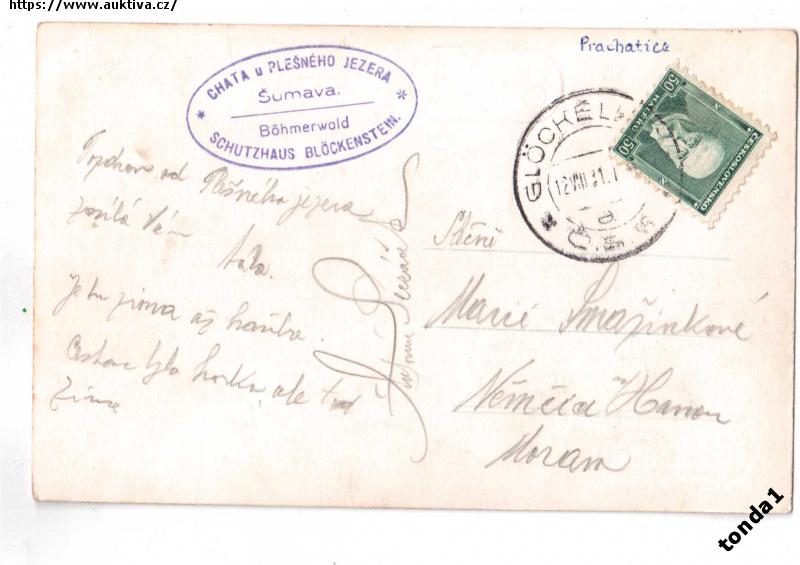 https://www.auktiva.cz/
Prachatice
CHATA u PLEŠNÉHO JEZERA
Šumava.
Böhmerwald
SCHUTZHAUS BLÖCKENSTEIN.
GLÖCKEL
12.VIII.31
50 HALÉŘŮ 50
ČESKOSLOVENSKO
Pozdrav od Plešného jezera
posílá Vám
táta.
Je tu zima až hanba.
Cestou bylo horko, ale tu
zima
Slečně
Marii Smažinkové
Němčice Hanou
Morava
tonda1